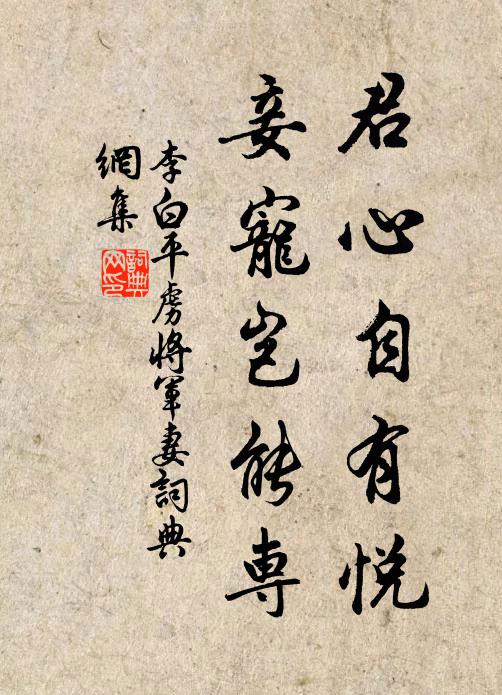 君心自有悦
妾寵豈能専
李白平虜將軍妻詞典
網集
詞典網印